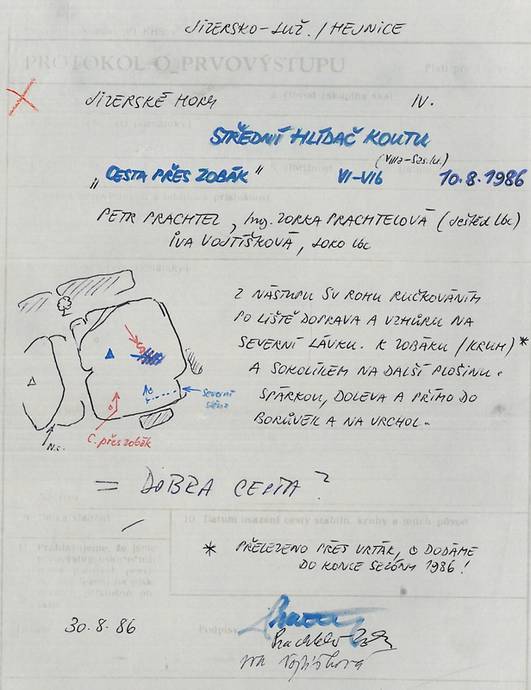 JIZERSKO-LUŽ. / HEJNICE
PROTOKOL O PRVOVÝSTUPU
JIZERSKÉ HORY IV.
STŘEDNÍ HLÍDAČ KOUTU
(VIIIa-Sas.lu.)
"CESTA PŘES ZOBÁK" VI-VIb 10.8.1986
PETR PRACHTEL, Ing. ZORKA PRACHTELOVÁ (Ještěd Lbc)
IVA VOJTÍŠKOVÁ, LOKO Lbc
Z NÁSTUPU SV ROHU RUČKOVÁNÍM
PO LIŠTĚ DOPRAVA A VZHŮRU NA
SEVERNÍ LÁVKU. K ZOBÁKU /KRUH/ *
A SOKOLÍKEM NA DALŠÍ PLOŠINU.
SPÁRKOU, DOLEVA A PŘÍMO DO
BORŮVEK A NA VRCHOL.
Severní
stěna
C. přes zobák
N.c.
= DOBRA CESTA?
10. Datum osazení cesty stabiln. kruhy a jejich původ
* PŘELEZENO PŘES VRTÁK, O DODÁME
DO KONCE SEZÓNY 1986!
11. Prohlašujeme, že jsme
30.8.86
Podpisy